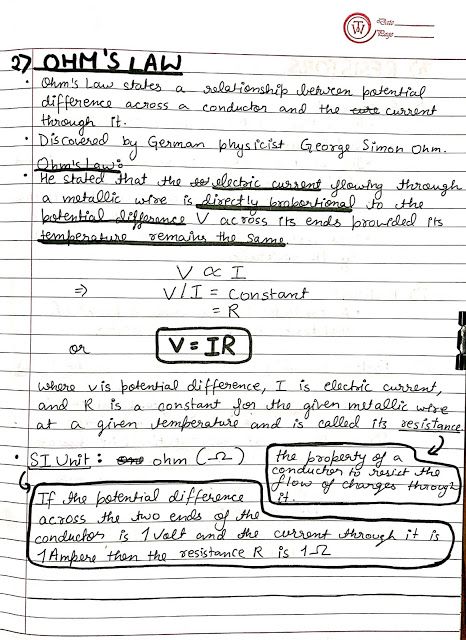 TW
Date
Page
2) OHM'S LAW
• Ohm's Law states a relationship between potential
difference across a conductor and the current
through it.
• Discovered by German physicist George Simon Ohm.
Ohm's Law:
• He stated that the electric current flowing through
a metallic wire is directly proportional to the
potential difference V across its ends provided its
temperature remains the same.
V ∝ I
⇒ V/I = Constant
= R
or V = IR
where V is potential difference, I is electric current,
and R is a constant for the given metallic wire
at a given temperature and is called its resistance.
the property of a
conductor to resist the
flow of charges through
it.
• SI Unit: ohm (Ω)
If the potential difference
across the two ends of the
conductor is 1 Volt and the current through it is
1 Ampere then the resistance R is 1Ω